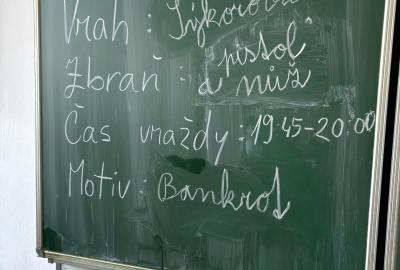 Vrah : Sýkorová
Zbraň : pistol
a nůž
Čas vraždy : 19:45-20:00
Motiv : Bankrot